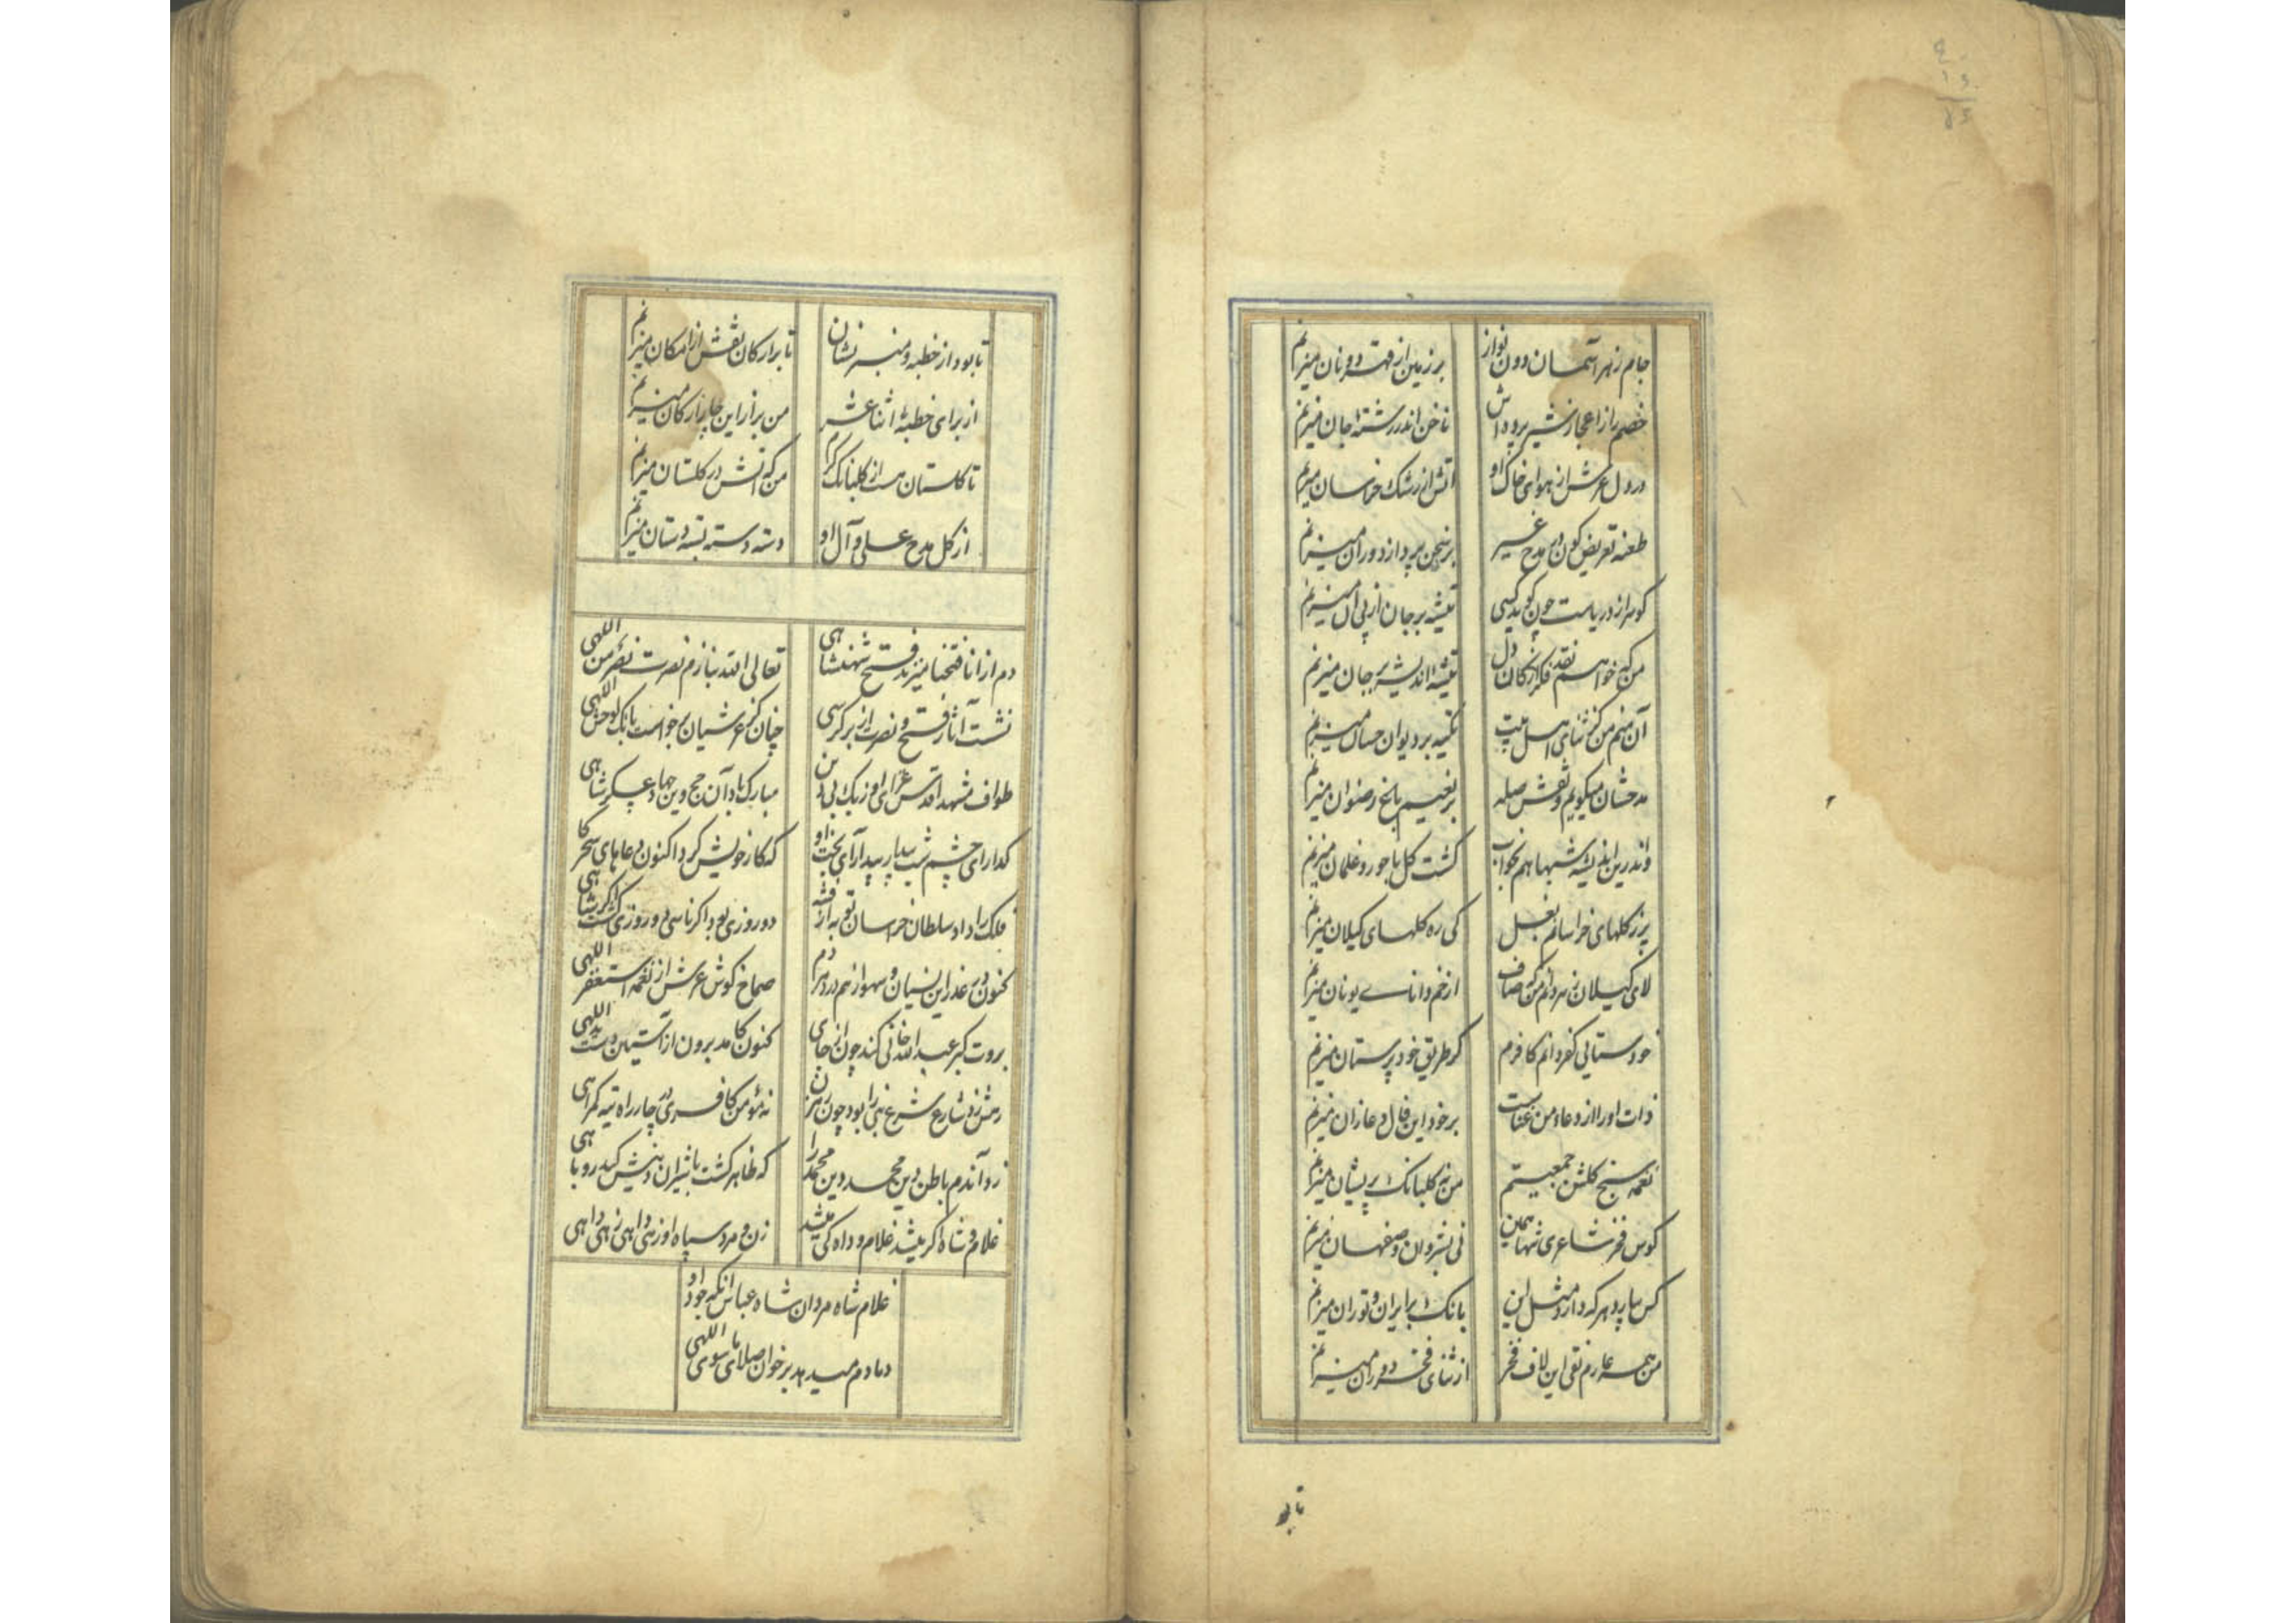 جام زهر آسمان دون نواز
بر زمین از فهت دونان میزنم
خصم را از اعجاز شیر پرده اش
ناخن اندر رشته جان میزنم
در دل عرش از هوای خاک او
آتش از رشک خراسان میزنم
طعنه تعریض کون در مدح غیر
بر سخن پرداز دوران میزنم
گوهر از دریاست چون گوید کسی
تیشه بر جان از پی آن میزنم
من که خواهم نقد فکر از کان دل
تیشه اندیشه بر جان میزنم
آن منم من کز ثنای اهل بیت
تکیه بر دیوان حسان میزنم
مدحشان میگویم و نقش صله
بر نعیم باغ رضوان میزنم
واندرین اندیشه شبها هم بخواب
گشت گل با حور و غلمان میزنم
پر ز گلهای خراسانم بغل
کی ره گلهای گیلان میزنم
لای گیلان زهر دانم من که صاف
از خم دانای یونان میزنم
خود ستایی کفر دانم کافرم
گر طریق خود پرستان میزنم
ذات او را از دعاء من غناست
بر خود این فال دعا زان میزنم
نغمه سنج گلشن جمعیتم
من نه گلبانگ پریشان میزنم
کوس فخر شاعری تنها همین
نی بشروان و صفهان میزنم
کس بیارد هر که دارد مثل این
بانگ بر ایران و توران میزنم
من همه عارم نقی این لاف فخر
از ثنای فخر دوران میزنم
تا بود
تا بود از خطبه و منبر نشان
تا بر ارکان نقش از امکان میزنم
از برای خطبهٔ اثنا عشر
من برابر این چار ارکان میزنم
تا گلستان هست از گلبانگ کرم
من که آتش در گلستان میزنم
از گل مدح علی و آل او
دسته دسته بسته دستان میزنم
دم از انا فتحنا میزند فتح شهنشاهی
تعالی الله بنازم نصرت نصر من اللهی
نشست آثار فتح و نصرت از بر کرسی
چنان کز عرشیان برخواست بانک لوحش اللهی
طواف مشهد اقدس غزای اوزبک بی دین
مبارک باد آن حج وین جهاد عسکر شاهی
گدارای چشم شب بیدار بیدارای بخت او
که کار خویش کرد اکنون دعاهای سحرگاهی
فلک را داد سلطان خراسان توبه از فتنه
دو روزی بود اگر ناسی دو روزی گشت اگر شاهی
کنون در عذر این نسیان و سهو از نهم در هر دم
صماخ گوش عرش از نغمه استغفر اللهی
بروت کبر عبدالله خانی کند چون از جای
کنون کامد برون از آستین دست یداللهی
رهش زد شارع شرع نبی را بود چون رهزن
نه مؤمن کافری در چار راه تیه گمراهی
زد آندم باطن دین محمد دین محمد را
که ظاهر گشت با شیران دینش کید روباهی
غلام و شاه اگر میشد غلام و داه کی میشد
زن و مرد سپاه اوزهی داهی زهی داهی
غلام شاه مردان شاه عباس آنکه جود او
دمادم میدهد بر خوان صلای ماسوی اللهی